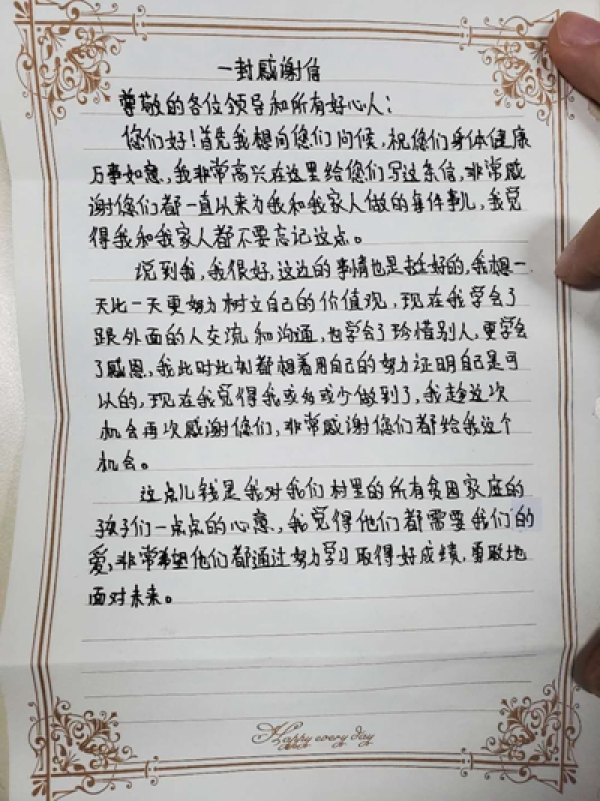 一封感谢信
尊敬的各位领导和所有好心人：
您们好！首先我想向您们问候，祝您们身体健康
万事如意，我非常高兴在这里给您们写这条信，非常感
谢您们都一直以来为我和我家人做的每件事儿，我觉
得我和我家人都不要忘记这点。
说到我，我很好，这边的事情也是挺好的，我想一
天比一天更努力树立自己的价值观，现在我学会了
跟外面的人交流和沟通，也学会了珍惜别人，更学会
了感恩，我此时此刻都想着用自己的努力证明自己是可
以的，现在我觉得我或多或少做到了，我趁这次
机会再次感谢您们，非常感谢您们都给我这个
机会。
这点儿钱是我对我们村里的所有贫困家庭的
孩子们一点点的心意，我觉得他们都需要我们的
爱，非常希望他们都通过努力学习取得好成绩，勇敢地
面对未来。
Happy every day